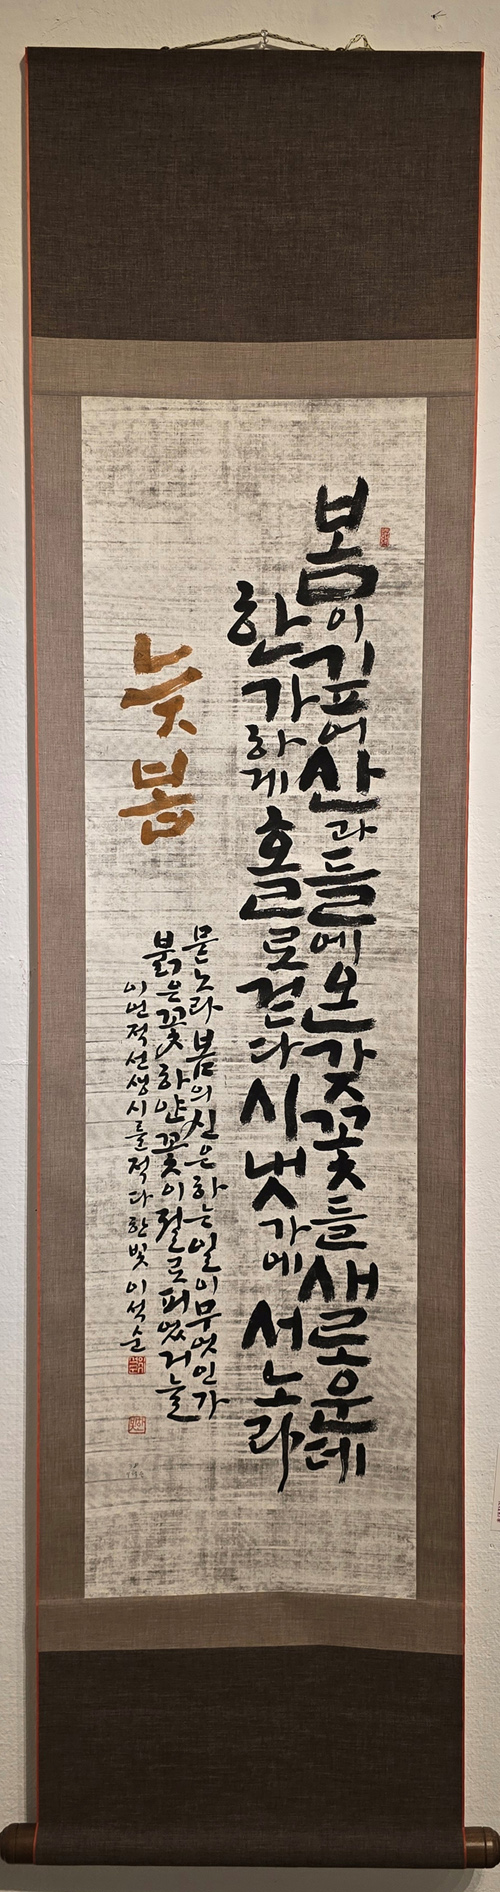 봄이 깊어 산과 들에 온갖 꽃들 새로운데
한가하게 홀로 걷다 시냇가에 서노라
늦봄
묻노라 봄의 신은 하는 일이 무엇인가
붉은 꽃 하얀 꽃이 절로 피었거늘
이언적 선생 시를 적다 한빛 이석순